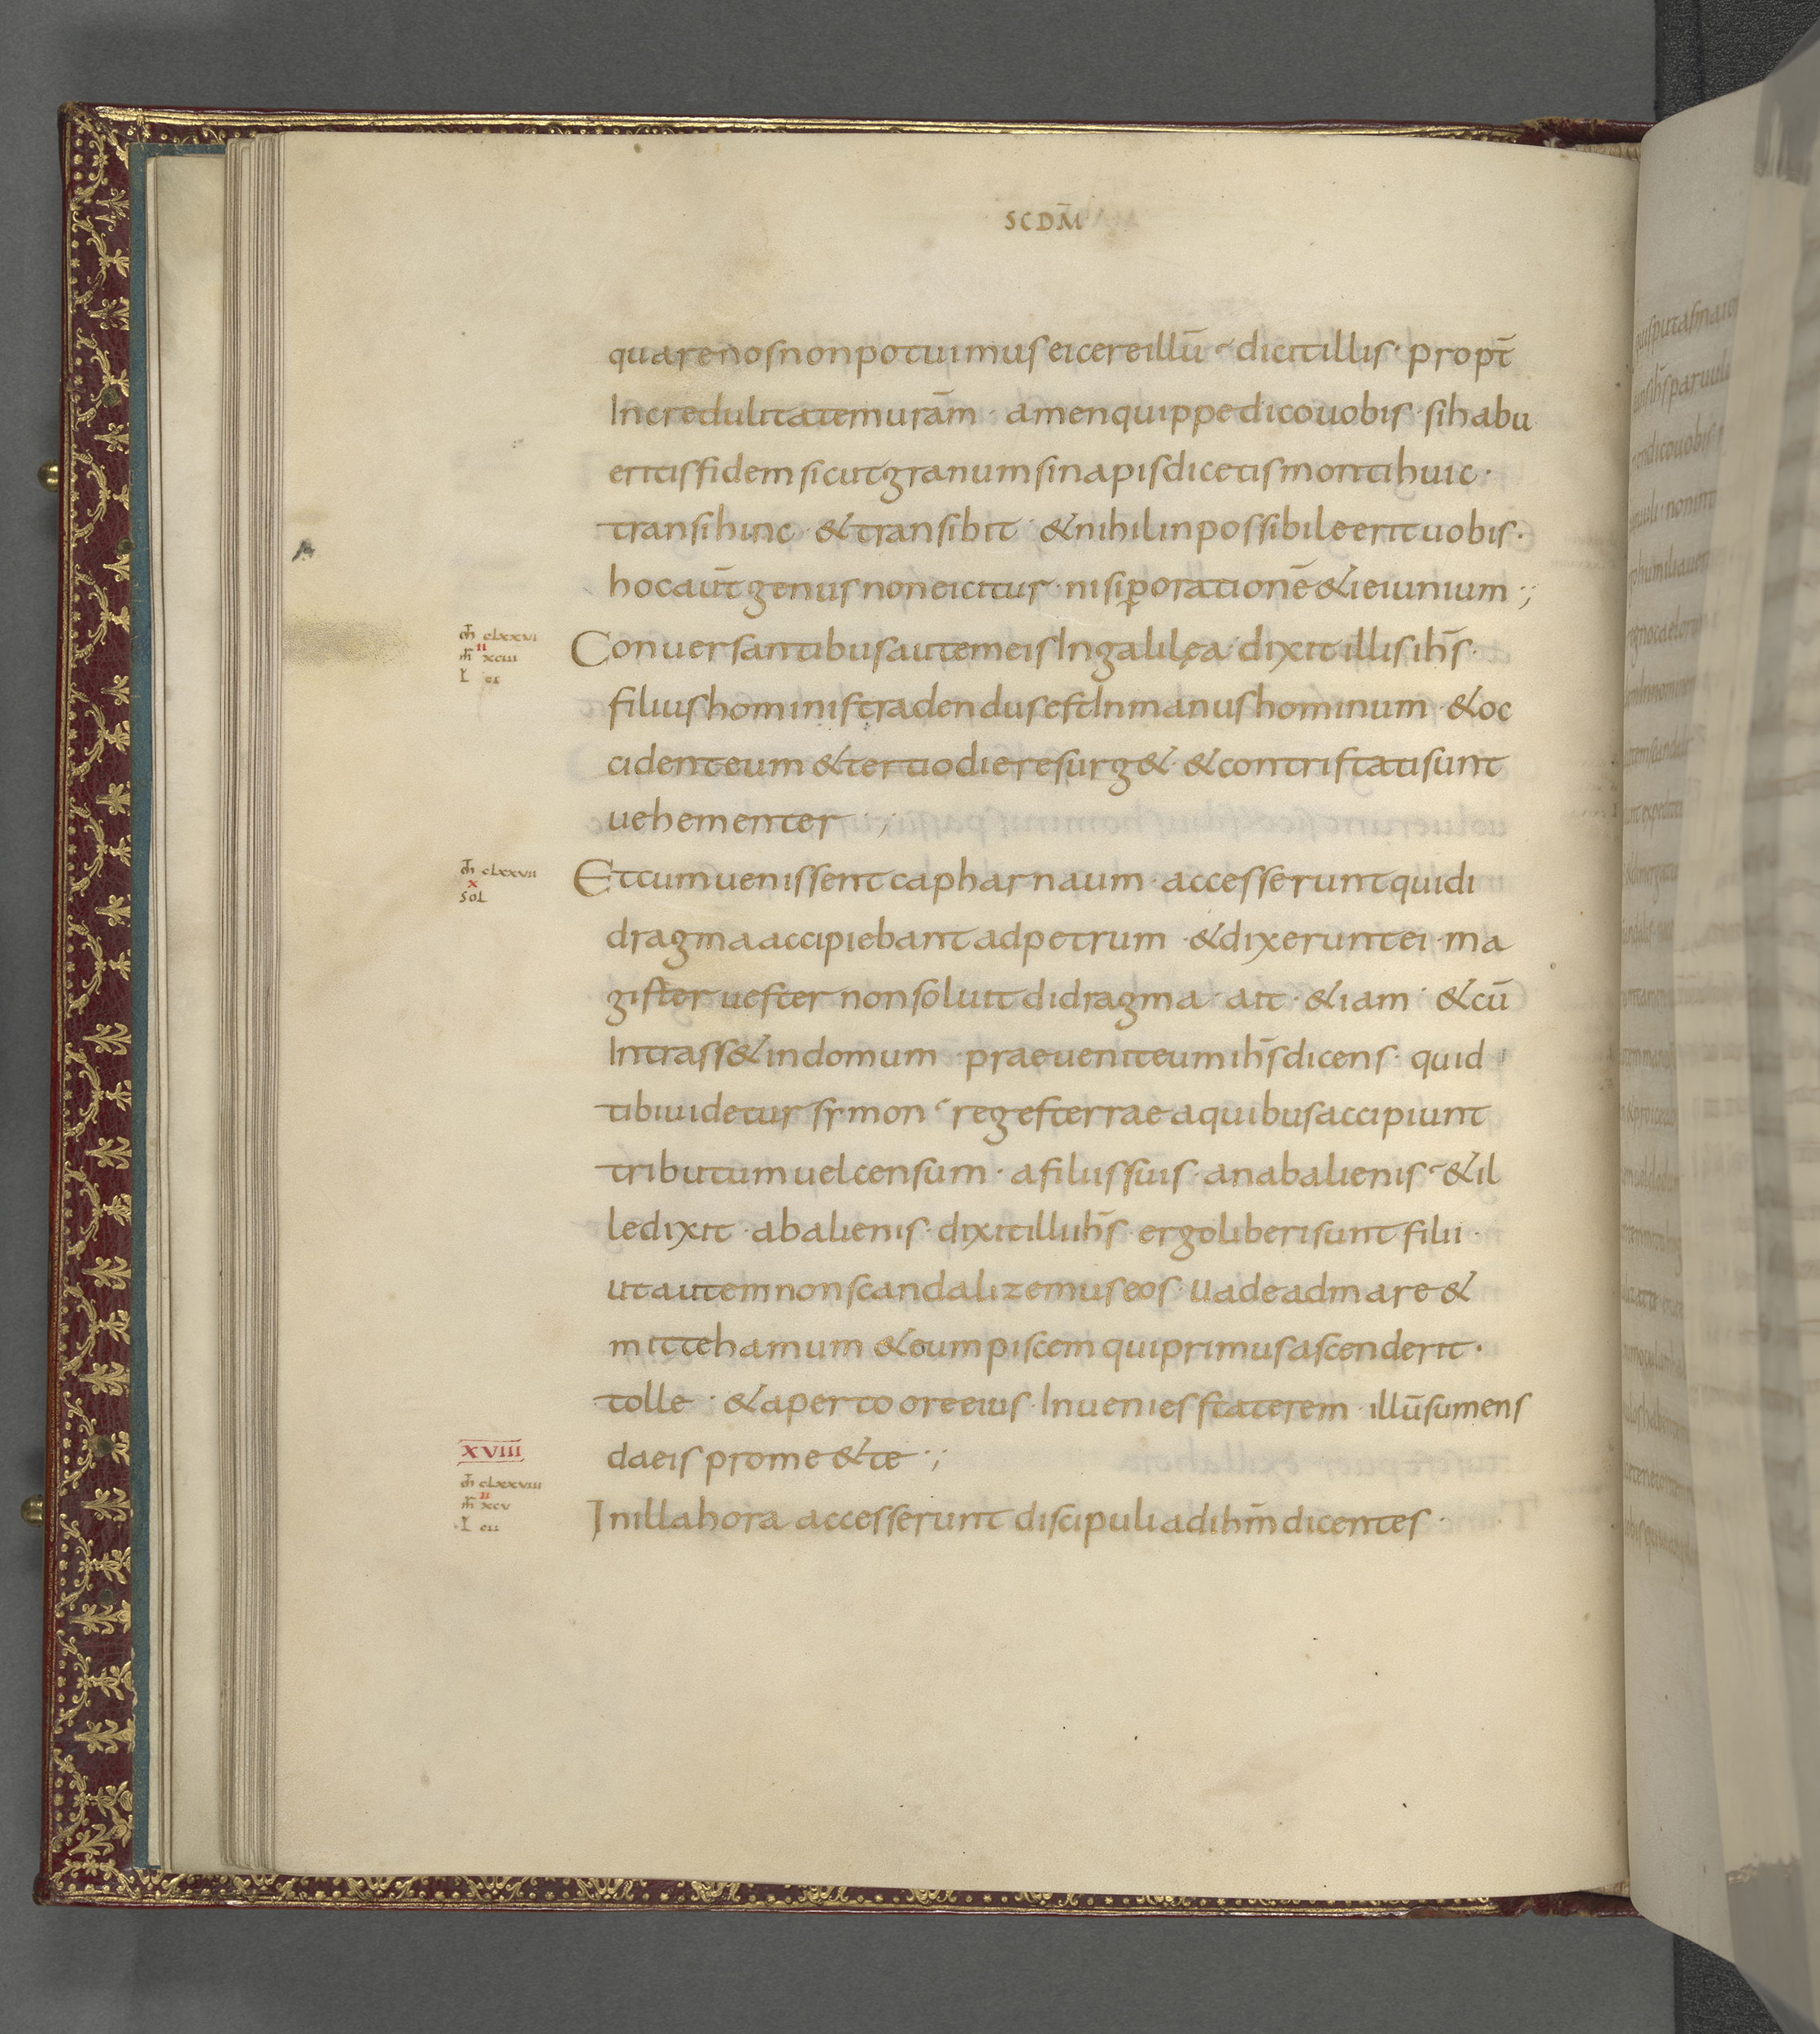 SCDM̄
quare nos non potuimus eicere illū · dicit illis · propt̄
Incredulitatem urām · amen quippe dico uobis · si habu
eritis fidem sicut granum sinapis dicetis monti huic ·
transi hinc · & transibit · & nihil inpossibile erit uobis ·
hoc aūt genus non eicitur · nisi ꝑ orationē & ieiunium ·;
m̄ clxxvi
II
m̄ xciii
Conuersantibus autem eis In galilęa · dixit illis ih̄s ·
filius hominis tradendus est In manus hominum · & oc
cident eum & tertio die resurg& · & contristati sunt
uehementer ·;
m̄ clxxvii
X
SOL
Et cum uenissent capharnaum · accesserunt qui di
dragma accipiebant ad petrum · & dixerunt ei · ma
gister uester non soluit didragma · ait · &iam · & cū
Intrass& in domum · praeuenit eum ih̄s dicens · quid
tibi uidetur symon · reges terrae a quibus accipiunt
tributum uel censum · a filiis suis · an ab alienis · & il
le dixit · ab alienis · dixit illi ih̄s · ergo liberi sunt filii ·
ut autem non scandalizemus eos · uade ad mare &
mitte hamum & eum piscem qui primus ascenderit ·
tolle · & aperto ore eius · Inuenies staterem · illū sumens
da eis pro me & te ·;
XVIII
m̄ clxxviii
II
m̄ xcv
In illa hora accesserunt discipuli ad ih̄m dicentes ·